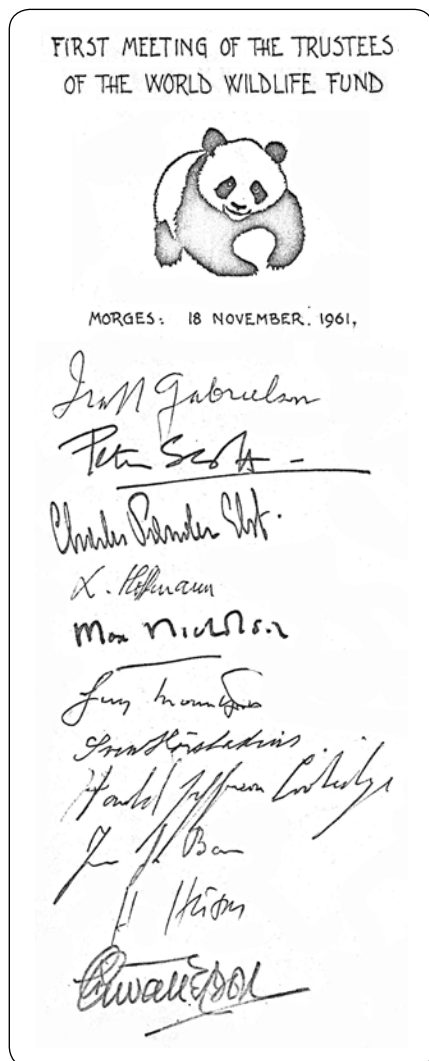 FIRST MEETING OF THE TRUSTEES
OF THE WORLD WILDLIFE FUND
MORGES: 18 NOVEMBER. 1961,
Ira N Gabrielson
Peter Scott
Charles Vander Elst.
L. Hoffmann
Max Nicholson
Guy Mountfort
Sven Hörstadius
Harold Jefferson Coolidge